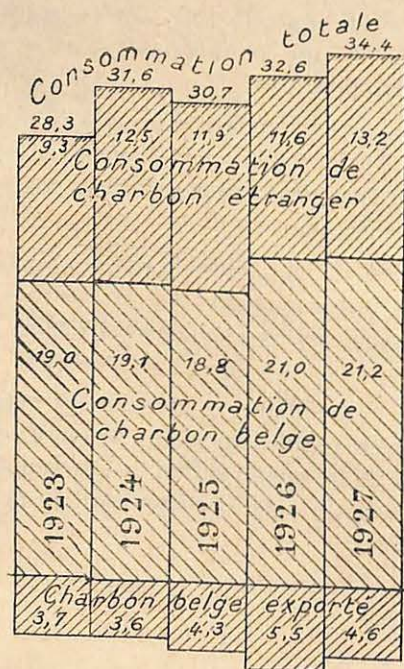 Consommation totale
28,3 31,6 30,7 32,6 34,4
9,3 12,5 11,9 11,6 13,2
Consommation de
charbon étranger
19,0 19,1 18,8 21,0 21,2
Consommation de
charbon belge
1923 1924 1925 1926 1927
Charbon belge exporté
3,7 3,6 4,3 5,5 4,6